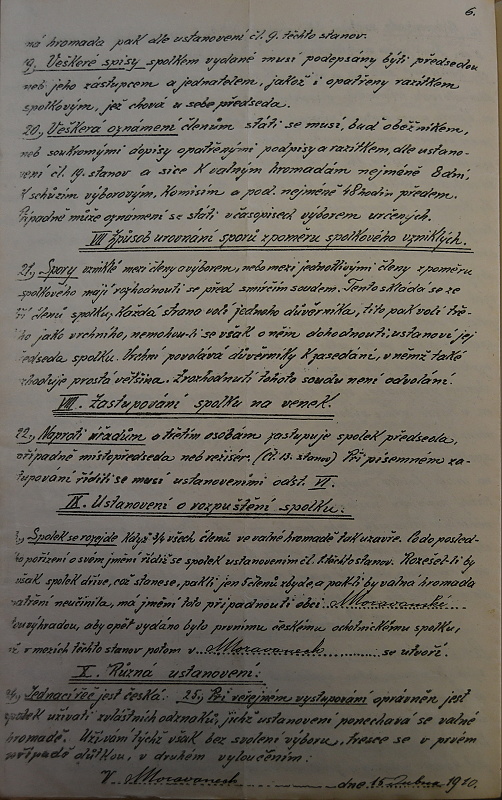 6.
ná hromada pak dle ustanovení čl. 9. těchto stanov.
19., Veškeré spisy spolkem vydané musí podepsány býti předsedou
neb jeho zástupcem a jednatelem, jakož i opatřeny razítkem
spolkovým, jež chová u sebe předseda.
20., Veškera oznámení členům státi se musí, buď oběžníkem,
neb soukromými dopisy opatřenými podpisy a razítkem, dle ustano-
vení čl. 19. stanov a sice k valným hromadám nejméně 8 dní,
k schůzím výborovým, komisím a pod. nejméně 48 hodin předem.
Případně může oznámení se státi v časopisech výborem určených.
VII Způsob urovnání sporů z poměru spolkového vzniklých.
21., Spory vzniklé mezi členy a výborem, nebo mezi jednotlivými členy z poměru
spolkového mají rozhodnouti se před smírčím soudem. Tento skládá se ze
členů spolku, každá strana volí jednoho důvěrníka, tito pak volí tře-
tího jako vrchního, nemohou-li se však o něm dohodnouti, ustanoví jej
předseda spolku. Vrchní povolává důvěrníky k zasedání, v němž také
rozhoduje prostá většina. Z rozhodnutí tohoto soudu není odvolání.
VIII. Zastupování spolku na venek.
22., Naproti úřadům a třetím osobám zastupuje spolek předseda,
případně místopředseda neb režisér. (Čl. 13. stanov) Při písemném za-
stupování říditi se musí ustanoveními odst. VI.
IX. Ustanovení o rozpuštění spolku.
Spolek se rozejde když 3/4 všech členů ve valné hromadě tak uzavře. Co do posled-
ního pořízení o svém jmění řídiž se spolek ustanovením čl. těchto stanov. Rozešel-li by
však spolek dříve, což stane se, pakli jen 5 členů zbyde, a pakli by valná hromada
opatření neučinila, má jmění toto připadnouti obci Moravanské
výhradou, aby opět vydáno bylo prvnímu českému ochotnickému spolku,
v mezích těchto stanov potom v Moravanech se utvoří.
X. Různá ustanovení:
24., Jednací řeč jest česká. 25., Při veřejném vystupování oprávněn jest
spolek užívati zvláštních odznaků, jichž ustanovení ponechává se valné
hromadě. Užívání týchž však bez svolení výboru, tresce se v prvém
případě důtkou, v druhém vyloučením:
V Moravanech dne 15 Dubna 1920.